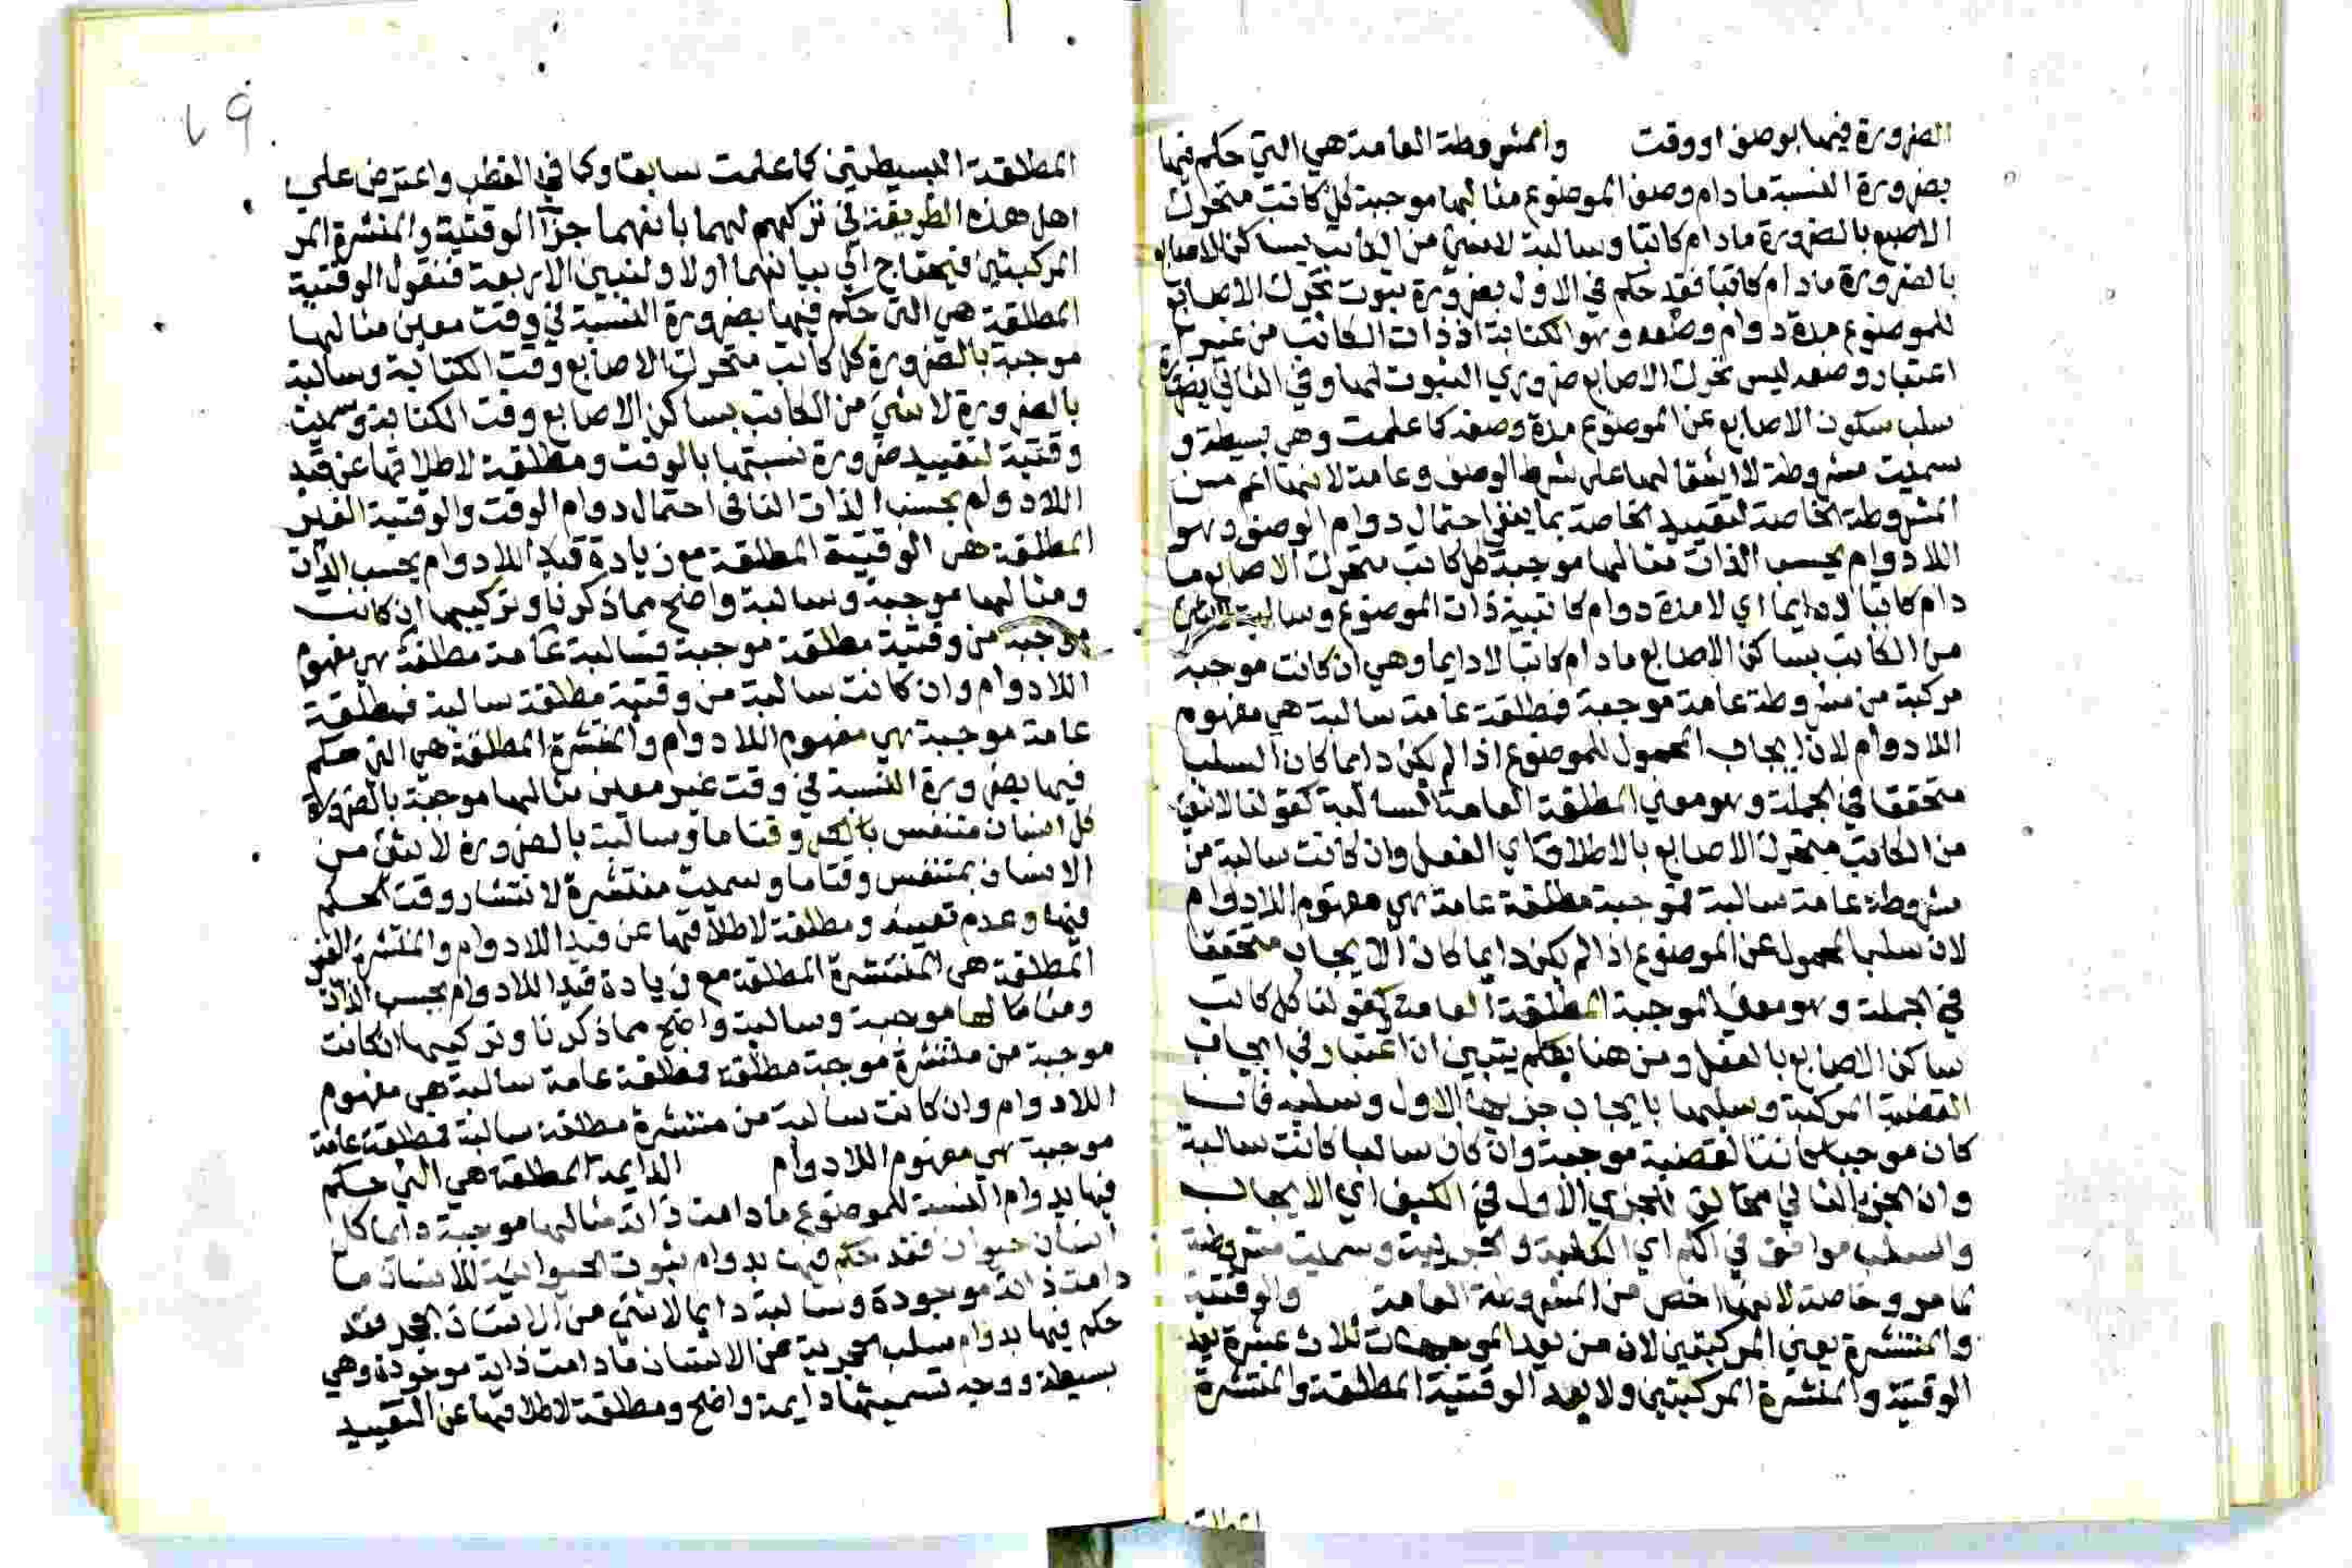 الضرورة فيها بوصف او وقت والمشروطة العامة هي التي حكم فيها
بضرورة النسبة مادام وصف الموضوع مثالها موجبة كل كاتب متحرك
الاصبع بالضرورة مادام كاتبا وسالبة لاشئ من الكاتب بساكن الاصابع
بالضرورة مادام كاتبا فقد حكم في الاول بضرورة ثبوت تحرك الاصابع
للموضوع مدة دوام وصفه وهو الكتابة اذ ذات الكاتب من غير
اعتبار وصفه ليس تحرك الاصابع ضروري الثبوت لها وفي الثاني بضرورة
سلب سكون الاصابع عن الموضوع مدة وصفه كما علمت وهي بسيطة و
سميت مشروطة لاشتقالها على شرط الوصف وعامة لانها اعم من
المشروطة الخاصة لتقييد الخاصة بما ينفي احتمال دوام الوصف وهو
اللادوام بحسب الذات مثالها موجبة كل كاتب متحرك الاصابع ما
دام كاتبا لا دايما اي لا مدة دوام كاتبية ذات الموضوع وسالبة لاشئ
من الكاتب بساكن الاصابع مادام كاتبا لا دايما وهي ان كانت موجبة
مركبة من مشروطة عامة موجبة فمطلقة عامة سالبة هي مفهوم
اللادوام لان ايجاب المحمول للموضوع اذا لم يكن دايما كان السلب
متحققا في الجملة وهو معني المطلقة العامة السالبة كقولنا لاشئ
من الكاتب متحرك الاصابع بالاطلاق اي الفعل وان كانت سالبة من
مشروطة عامة سالبة فموجبة مطلقة عامة هي مفهوم اللادوام
لان سلب المحمول عن الموضوع اذا لم يكن دايما كان الايجاب متحققا
في الجملة وهو معني الموجبة المطلقة العامة كقولنا كل كاتب
ساكن الاصابع بالفعل ومن هنا يتبين ان اعتبار في ايجاب
القضية المركبة وسلبها بايجاب جزيها الاول وسلبه فان
كان موجبا كانت القضية موجبة وان كان سالبا كانت سالبة
وان الجزء الثاني مخالف للجزي الاول في الكيف اي الايجاب
والسلب موافق في الكم اي الكلية والجزيية وسميت مشروطة
لما مر وخاصة لانها اخص من المشروطة العامة والوقتية
والمنتشرة يعني المركبتين لان من يعد الموجهات ثلاث عشرة يعد
الوقتية والمنتشرة المركبتين ولا يعد الوقتية المطلقة والمنتشرة
المطلقة
المطلقة البسيطتين كما علمت سابقا وكما في القطب واعترض علي
اهل هذه الطريقة في تركهم لهما بانهما جزآ الوقتية والمنتشرة
المركبتين فيحتاج الي بيانهما اولا ولنبين الاربعة فنقول الوقتية
المطلقة هي التي حكم فيها بضرورة النسبة في وقت معين مثالها
موجبة بالضرورة كل كاتب متحرك الاصابع وقت الكتابة وسالبة
بالضرورة لاشئ من الكاتب بساكن الاصابع وقت الكتابة وسميت
وقتية لتقييد ضرورة نسبتها بالوقت ومطلقة لاطلاقها عن قيد
اللادوام بحسب الذات النافي احتمال دوام الوقت والوقتية الغير
المطلقة هي الوقتية المطلقة مع زيادة قيد اللادوام بحسب الذات
ومثالها موجبة وسالبة واضح مما ذكرنا وتركيبها ان كانت
موجبة من وقتية مطلقة موجبة فسالبة عامة مطلقة هي مفهوم
اللادوام وان كانت سالبة من وقتية مطلقة سالبة فمطلقة
عامة موجبة هي مفهوم اللادوام والمنتشرة المطلقة هي التي حكم
فيها بضرورة النسبة في وقت غير معين مثالها موجبة بالضرورة
كل انسان متنفس وقتا ما وسالبة بالضرورة لاشئ من
الانسان بمتنفس وقتا ما وسميت منتشرة لانتشار وقت الحكم
فيها وعدم تعيينه ومطلقة لاطلاقها عن قيد اللادوام والمنتشرة الغير
المطلقة هي المنتشرة المطلقة مع زيادة قيد اللادوام بحسب الذات
ومثالها موجبة وسالبة واضح مما ذكرنا وتركيبها ان كانت
موجبة من منتشرة موجبة مطلقة فمطلقة عامة سالبة هي مفهوم
اللادوام وان كانت سالبة من منتشرة مطلقة سالبة فمطلقة عامة
موجبة هي مفهوم اللادوام الدايمة المطلقة هي التي حكم
فيها بدوام النسبة للموضوع مادامت ذاته مثالها موجبة دايما كل
انسان حيوان فقد حكم فيها بدوام ثبوت الحيوانية للانسان ما
دامت ذاته موجودة وسالبة دايما لاشئ من الانسان بحجر فقد
حكم فيها بدوام سلب الحجرية عن الانسان مادامت ذاته موجودة وهي
بسيطة ووجه تسميتها دايمة واضح ومطلقة لاطلاقها عن التقييد